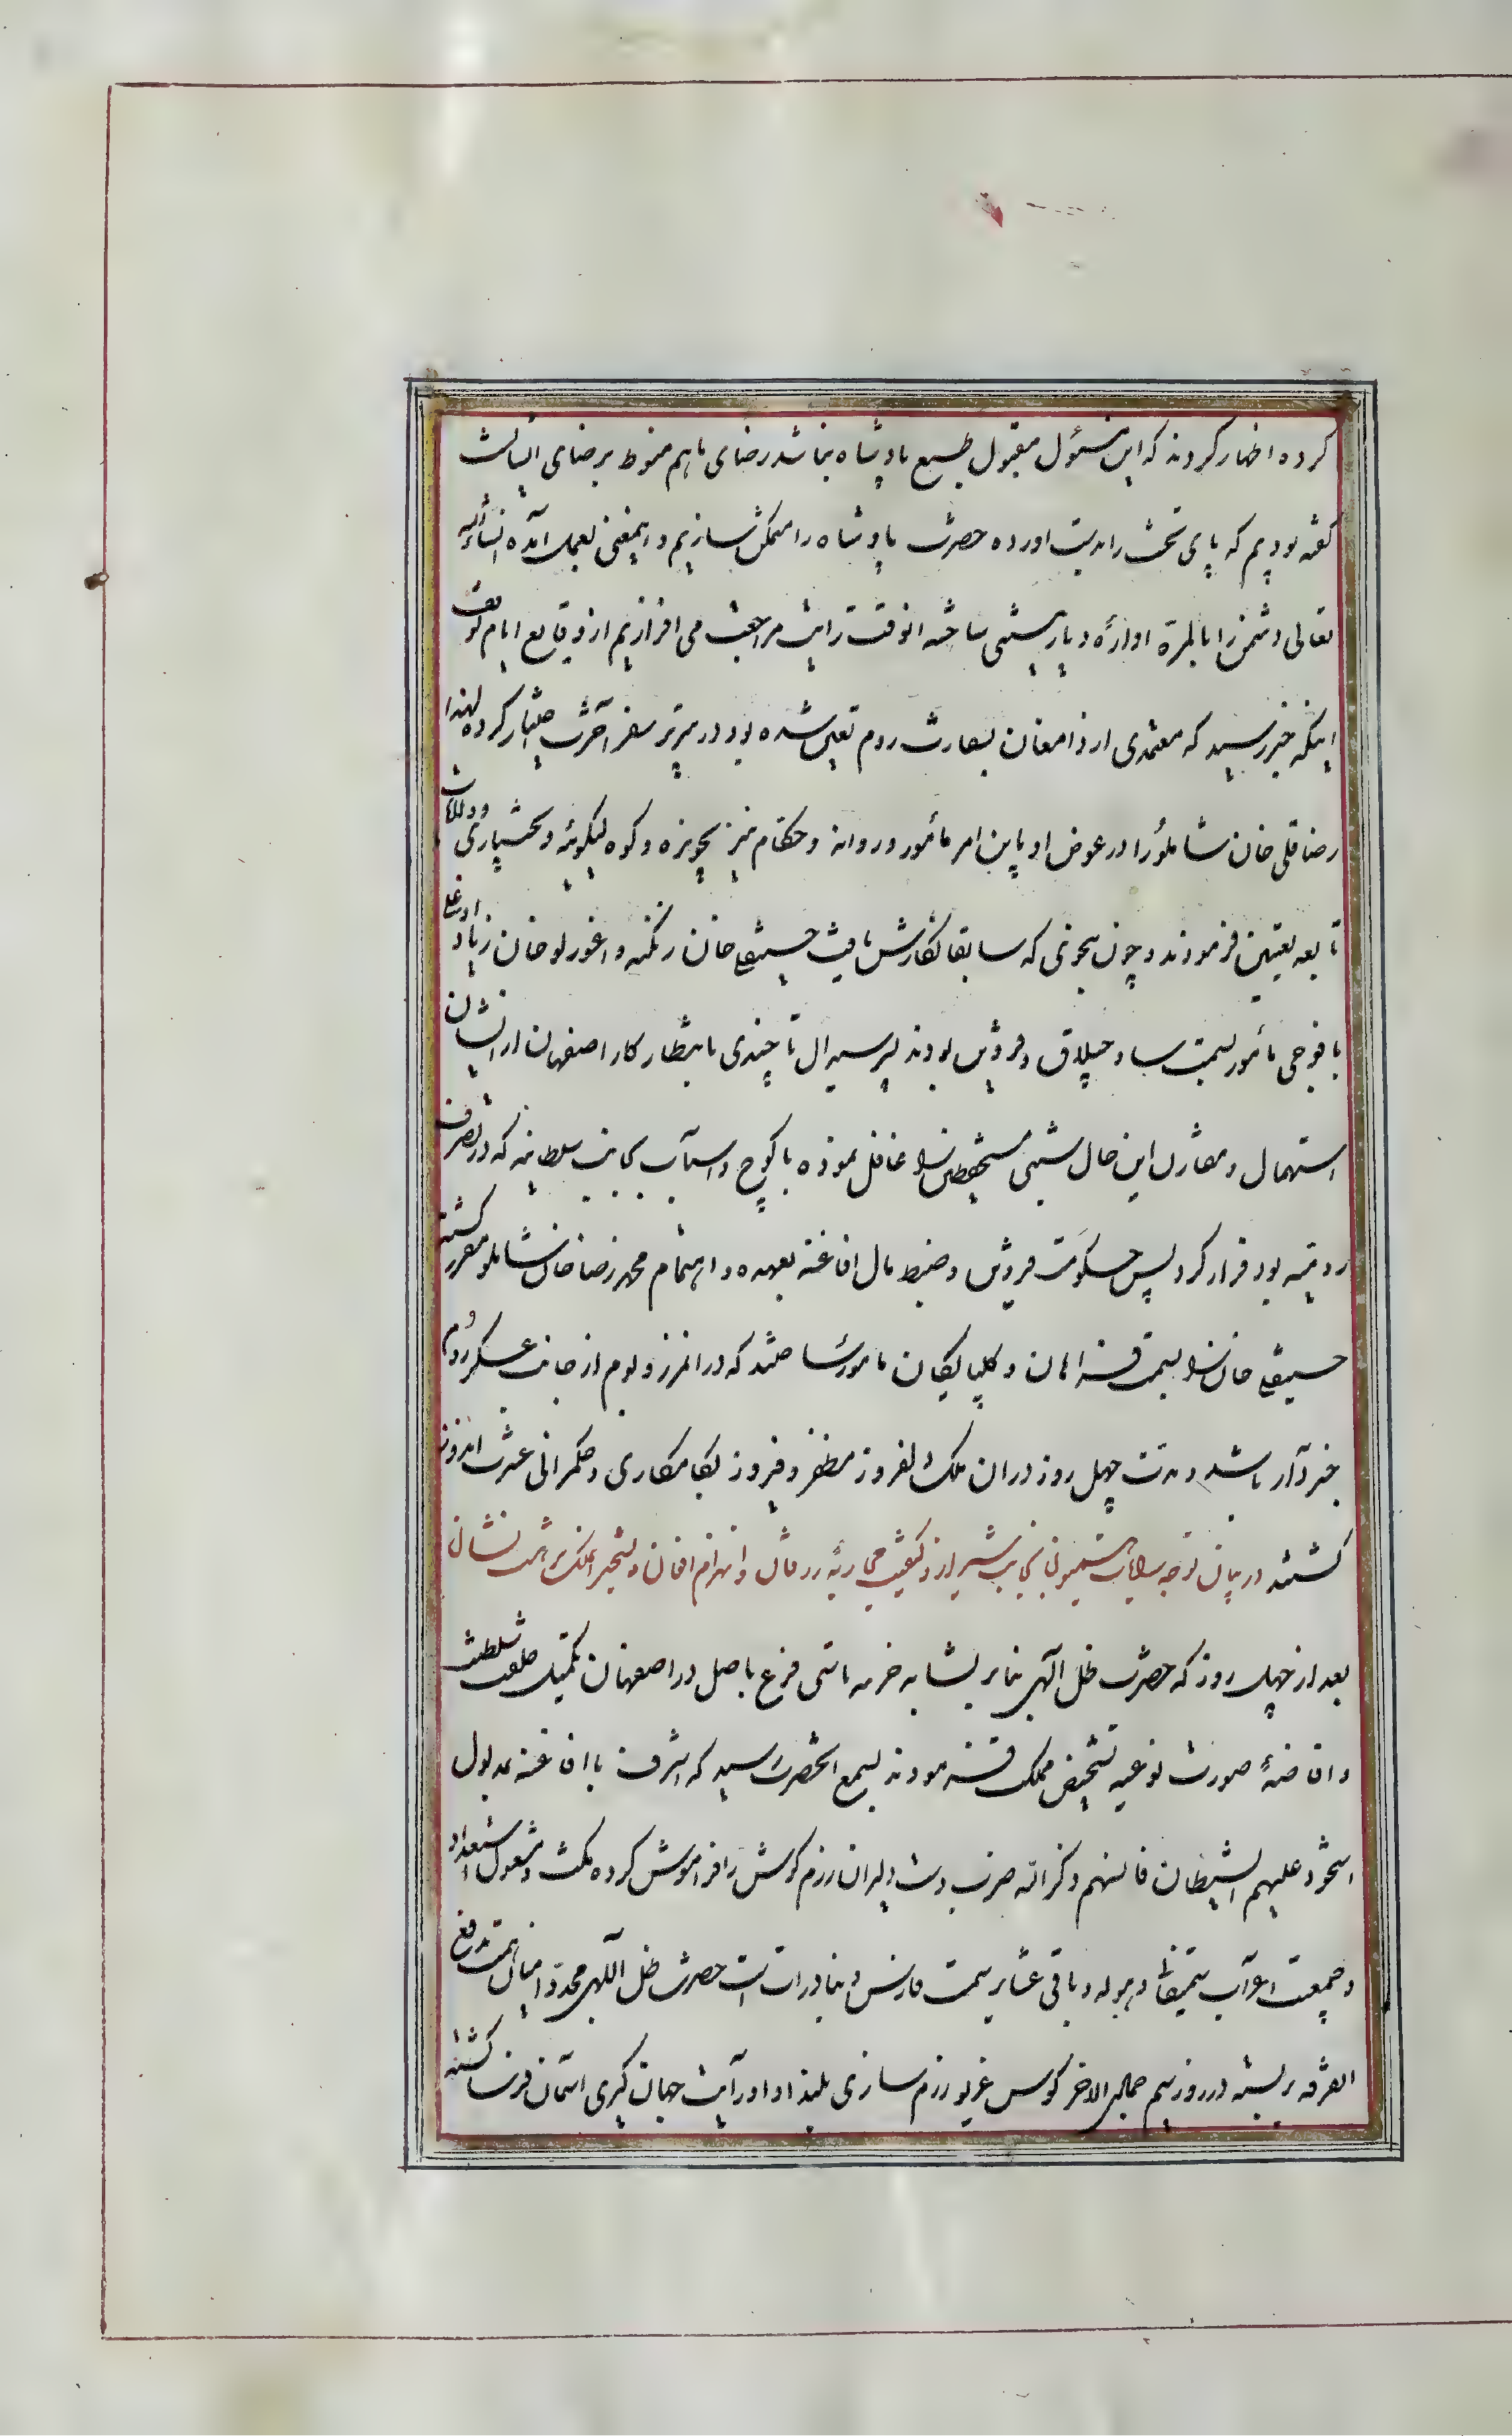 کرده اظهار کردند که این مسئول مقبول طبع پادشاه نباشد رضای ما هم منوط برضای ایشانست
گفته بودیم که پای تخت را بدست اورده حضرت پادشاه را متمکن سازیم و اینمعنی بعمل آمده انشاءالله
تعالی دشمن را بالمرة اوارهٔ دیار نیستی ساخته انوقت رایت مراجعت می افرازیم از وقایع ایام توقف
اینکه خبر رسید که معتمدی از دامغان بسفارت روم تعین شده بود در تبریز سفر آخرت اختیار کرده لهذا
رضا قلی خان شاملو را در عوض او باین امر مأمور و روانه و حکام نیز بحویزه و کوه کیلویه و بختیاری و ولایات
تابعه تعیین فرمودند و چون بنحوی که سابقا نکارش یافت حسینقلی خان زنکنه و اغورلو خان زیاد اوغلی
با فوجی مأمور بسمت ساوجبلاق و قزوین بودند پسر سیدال تا چندی بانتظار کار اصفهان از ایشان
استمهال و مقارن این حال شبی مستحفظین را غافل نموده با کوچ و اسباب بجانب سلطانیه که در تصرف
رومیه بود فرار کرد پس حکومت قزوین و ضبط مال افاغنه بعهده و اهتمام محمد رضا خان شاملو مقرر کشته
حسینقلی خان را بسمت فراهان و کلپایکان مامور ساختند که در انمرز و بوم از جانب عسکر روم
خبردار باشد و مدت چهل روز دران ملک دلفروز مظفر و فیروز بکامکاری و حکمرانی عشرت اندوز
کشتند در بیان توجه رایات همیونی بجانب شیراز و کیفیت محاربهٔ زرقان و انهزام افغان و تسخیر انملک بهشت نشان
بعد از چهل روز که حضرت ظل الهی بنابر نشابه خرمه باتنی فرع باصل در اصفهان بتکمیل خلعت سلطنت
و افاضهٔ صورت نوعیه تشخیص مملکت فرمودند بسمع انحضرت رسید که اشرف با افاغنه بمدلول
استحوذ علیهم الشیطان فانسیهم ذکر الله ضرب دست دلیران رزم کوش را فراموش کرده مکث و مشغول استعداد
و جمعیت اعراب و هوله و باقی عشایر سمت فارس و بنادرات است حضرت ظل اللهی مجددا میان همت بدفع
انفرقه بر بسته در روز سیم جمادی الاخر کوس غریو رزم سازی بلند اوا و رایت جهان کیری اسمان فرسا کشته